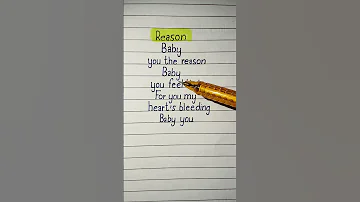 Reason
Baby
you the reason
Baby
you feel
For you my
heart's bleeding
Baby you